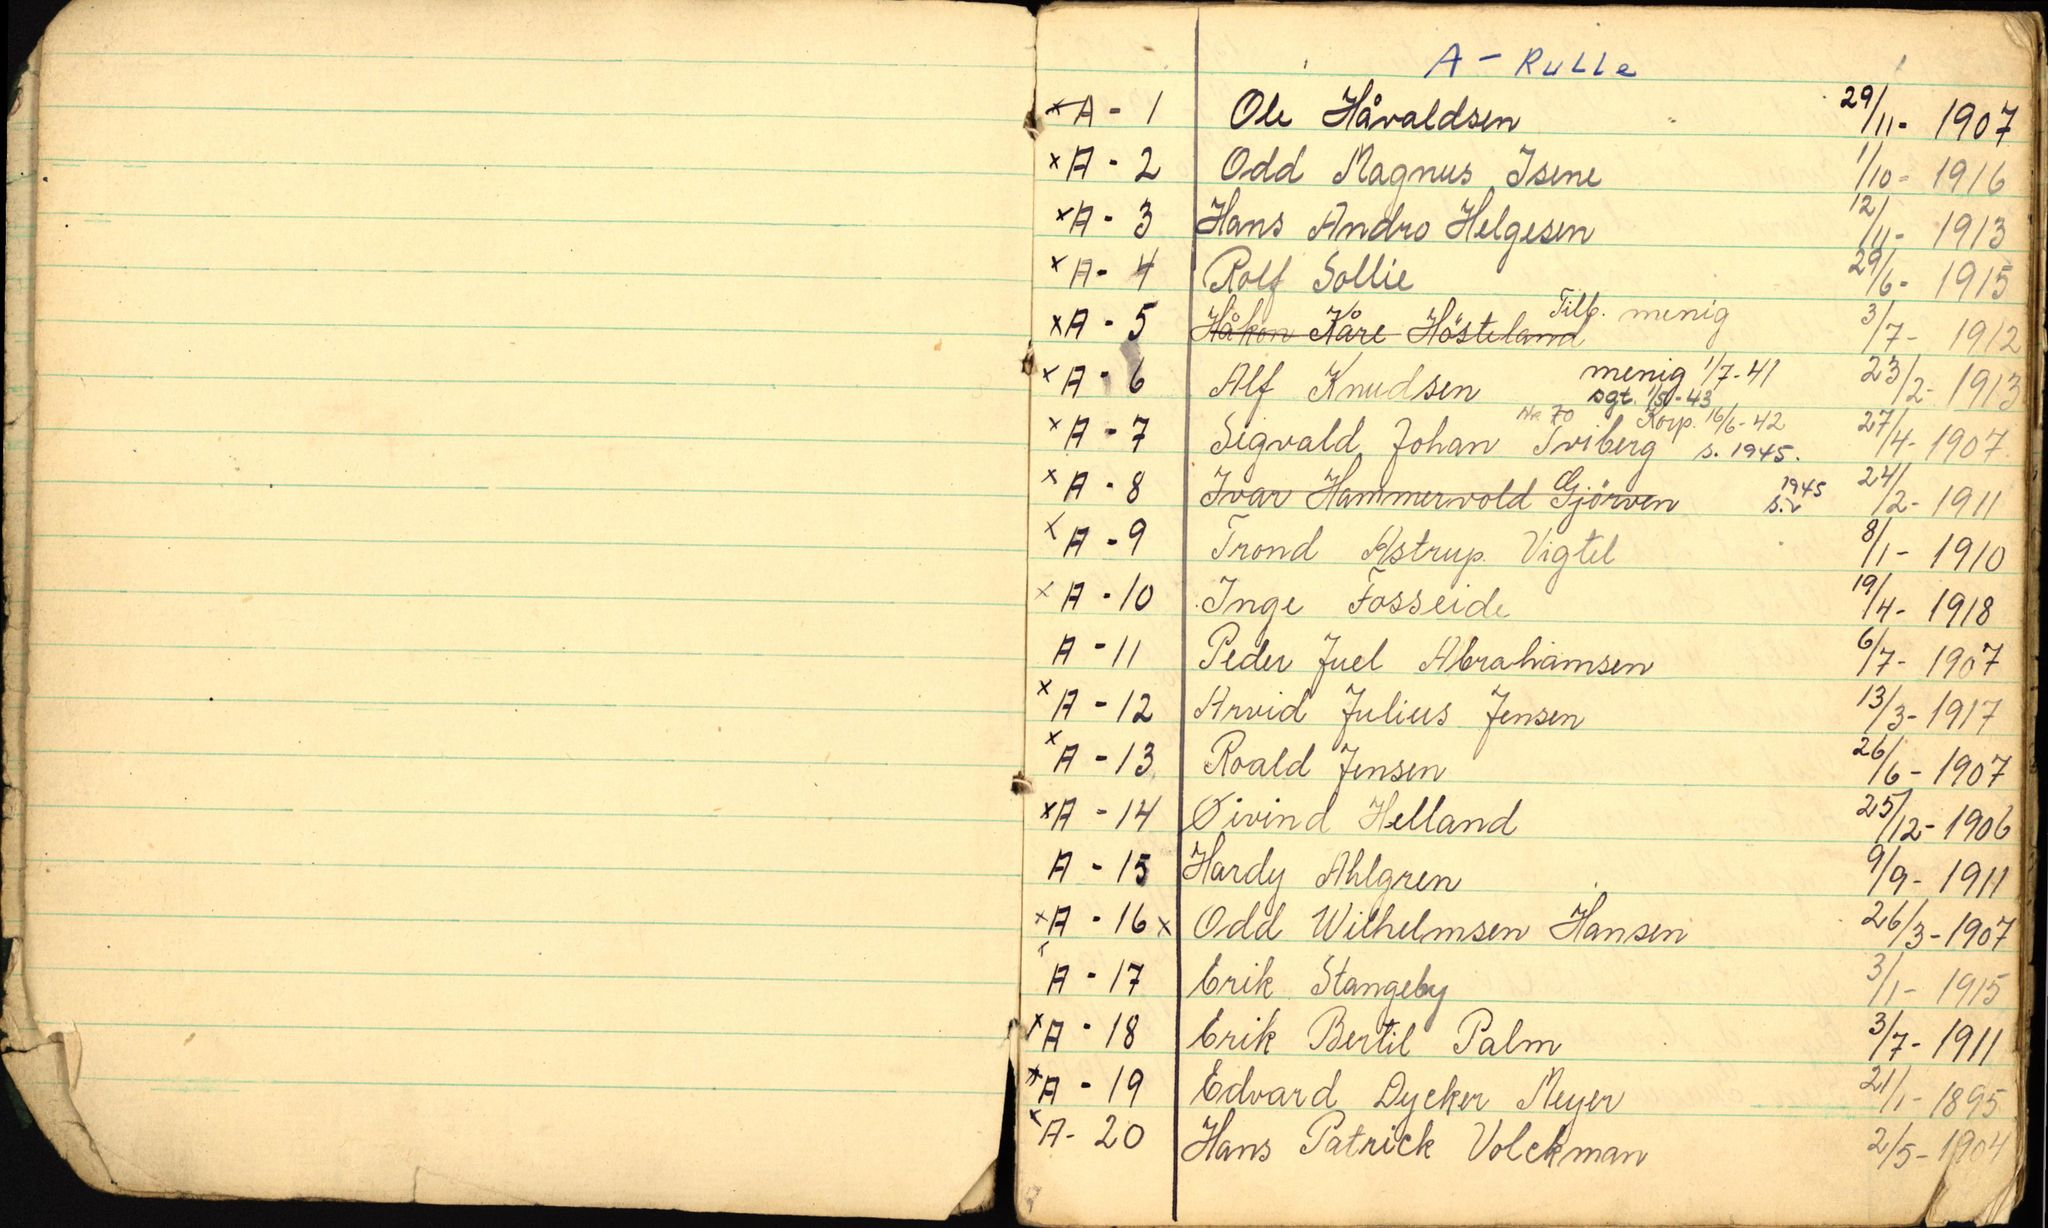 A - Rulle
x A - 1 Ole Håvaldsen 29/11 - 1907
x A - 2 Odd Magnus Isene 1/10 - 1916
x A - 3 Hans Andro Helgesen 12/11 - 1913
x A - 4 Rolf Sollie 29/6 - 1915
x A - 5 Håkon Kåre Hösteland Tilb. menig 3/7 - 1912
x A - 6 Alf Knudsen menig 1/7-41 23/2 - 1913
sgt. 1/5-43
Nr 70 Korp. 16/6-42
x A - 7 Sigvald Johan Tviberg s. 1945. 27/4 - 1907
x A - 8 Ivar Hammervold Gjörven s. 1945 24/2 - 1911
x A - 9 Trond Astrup Vigtel 8/1 - 1910
x A - 10 Inge Fosseide 19/4 - 1918
A - 11 Peder Juel Abrahamsen 6/7 - 1907
x A - 12 Arvid Julius Jensen 13/3 - 1917
x A - 13 Roald Jensen 26/6 - 1907
x A - 14 Øivind Helland 25/12 - 1906
A - 15 Hardy Ahlgren 9/9 - 1911
x A - 16 x Odd Wilhelmsen Hansen 26/3 - 1907
x A - 17 Erik Stangeby 3/1 - 1915
x A - 18 Erik Bertil Palm 3/7 - 1911
x A - 19 Edvard Dycker Meyer 21/1 - 1895
x A - 20 Hans Patrick Volckman 2/5 - 1904